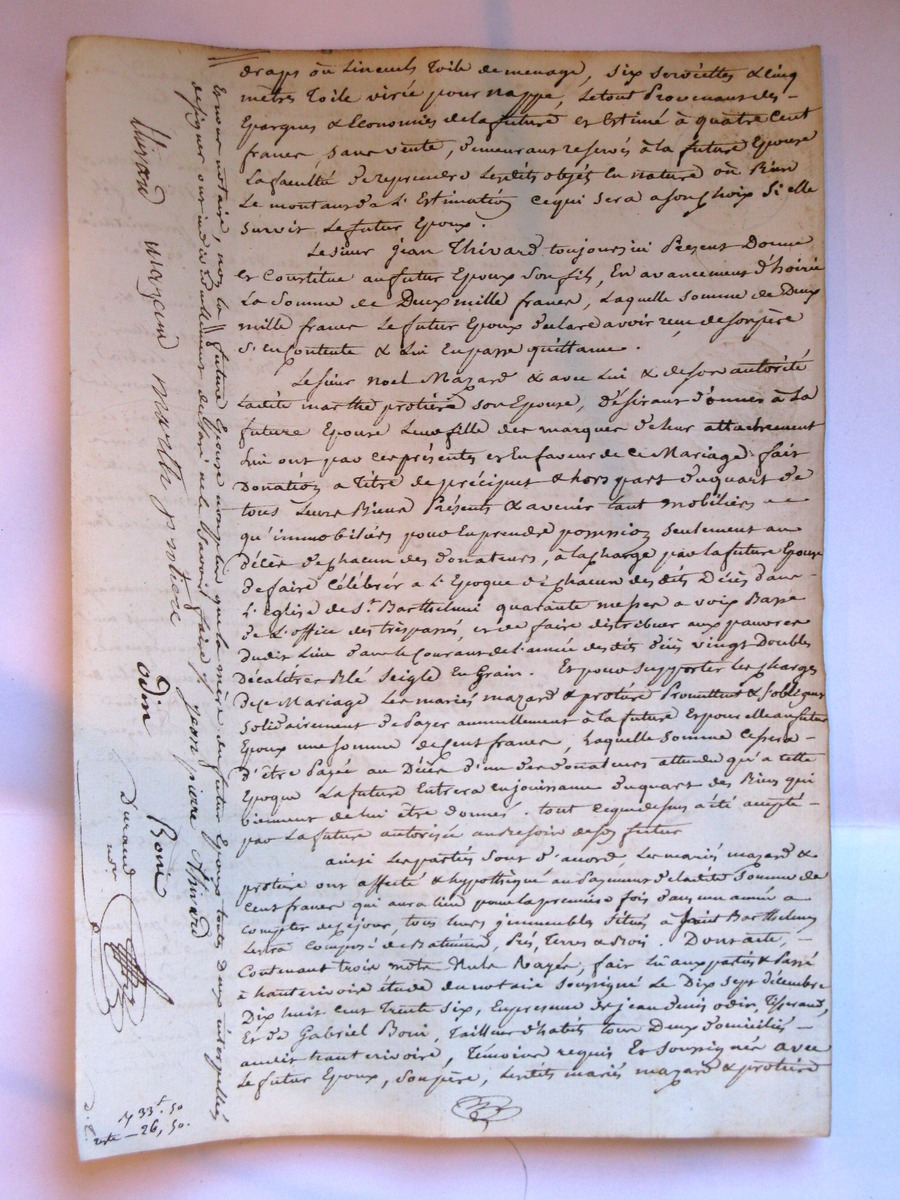 draps où Linceuls toile de menage, six serviettes & cinq
mètres toile virée pour nappe, Le tout Provenant des
Epargnes & Economies de la future et Estimé à quatre Cent
francs, sans vente, demeurant reservés à la future Epouse
La faculté de reprendre Lesdits objets En nature où Bien
Le montant de L'Estimation ce qui sera a son choix si elle
survit Le futur Epoux.
Le sieur jean Thivard toujours ici Present Donne
et Constitue au futur Epoux son fils, En avancement d'hoirie
La Somme de Deux mille francs, Laquelle somme de Deux
mille francs Le futur Epoux declare avoir reçu de son père
s'en Contente & Lui En passe quittance.
Le sieur noel Mazard & avec Lui & de son autorité
Ladite marthe protière son Epouse, Désirant donner à La
future Epouse Leur fille des marques de leur attachement
Lui ont par ces présentes et En faveur de ce Mariage fait
Donation a titre de préciput & hors part du quart de
tous Leurs Biens Présents & avenir tant mobiliers
qu'immobiliers pour En prendre possession seulement au
Décès de chacun des donateurs, à la charge par la future Epouse
de faire Célébrer a L'Epoque de chacun des dits Décès dans
L'Eglise de St. Barthelemi quarante messes a voix Basse
de L'office des trespassés, et de faire distribuer aux pauvres
dudit Lieu dans le Courant de L'année des dits décès vingt Doubles
Décalitres Blé Seigle En Grain. Et pour supporter Les charges
de ce Mariage Les mariés mazard & protière Promettent & s'obligent
solidairement de Payer annuellement à la future Et pour elle au futur
Epoux une somme de Cent francs, Laquelle somme Cessera
d'être Payée au Décès d'un des donateurs attendu qu'a cette
Epoque La future Entrera en jouissance du quart des Biens qui
viennent de lui être donnés. tout ce que dessus a été accepté
par La future autorisée au besoin de son futur
ainsi Les parties sont d'accord, Les mariés mazard &
protière ont affecté & hypothéqué au Payement de ladite somme de
Cent francs qui aura lieu pour la première fois dans un année a
compter de ce jour, tous Leurs immeubles Situés à Saint Barthelemy
Lestra Composé de Batiments, Prés, Terres & Bois. Dont acte,
Contenant trois mots Nuls Rayés, fait Lû aux parties & Passé
à hauterivoire étude du notaire soussigné Le Dix sept décembre
Dix huit Cent Trente six, En presence de jean denis odin, Tisserand,
Et de Gabriel Boni, Tailleur d'habits tous Deux domiciliés
audit hauterivoire, Témoins requis Et soussignés avec
Le futur Epoux, son père, Lesdits mariés mazard & protière
Et nous notaire, non la future Epouse non plus que la mère du futur Epoux toutes Deux interpellées
de signer ont individuellement declaré ne le savoir faire. jean pierre thivard
thivard mazard marthe protiere odin Boni
Durand
nre
33f. 50
reste — 26, 50.